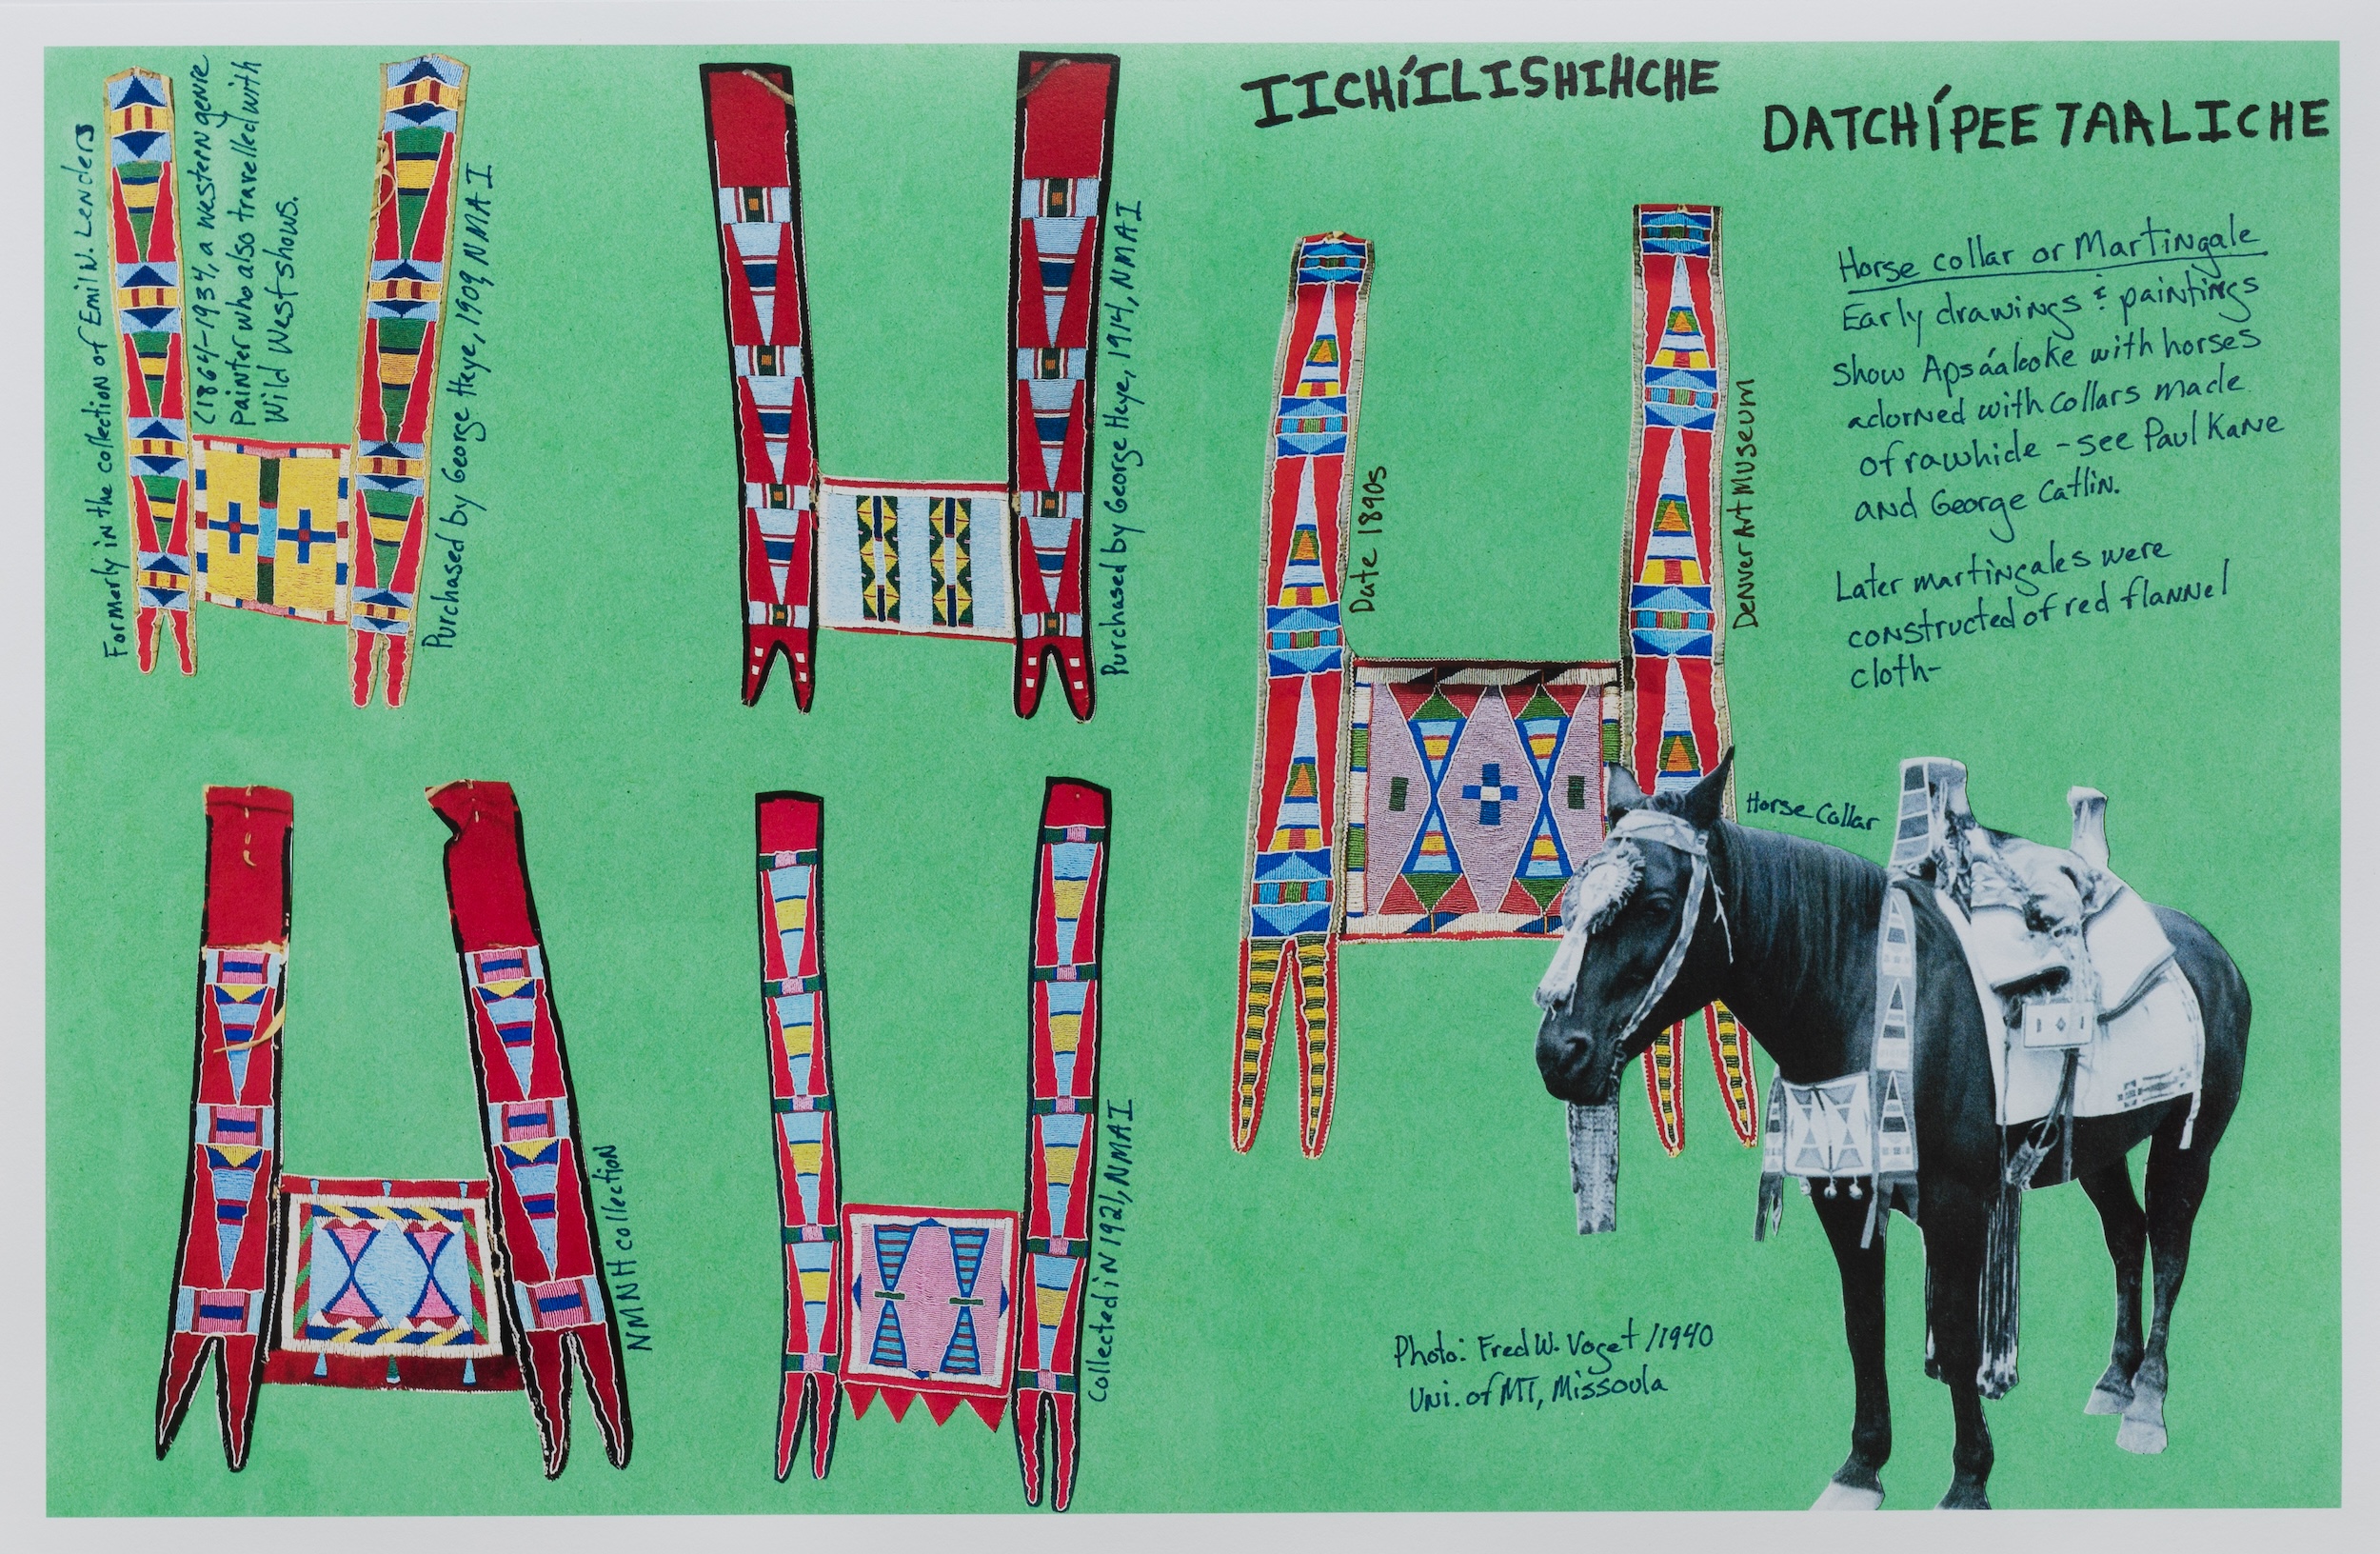 Formerly in the collection of Emil N. Lenders
(1864-1934, a western genre
painter who also travelled with
Wild West shows.
Purchased by George Heye, 1909, NMAI
Purchased by George Heye, 1914, NMAI
IICHÍILISHIHCHE
DATCHÍPEE TAALICHE
Date 1890s
Denver Art Museum
Horse collar or Martingale
Early drawings & paintings
show Apsáalooke with horses
adorned with collars made
of rawhide - see Paul Kane
and George Catlin.
Later martingales were
constructed of red flannel
cloth-
Horse Collar
NMNH collection
Collected in 1921, NMAI
Photo: Fred W. Voget /1940
Uni. of MT, Missoula